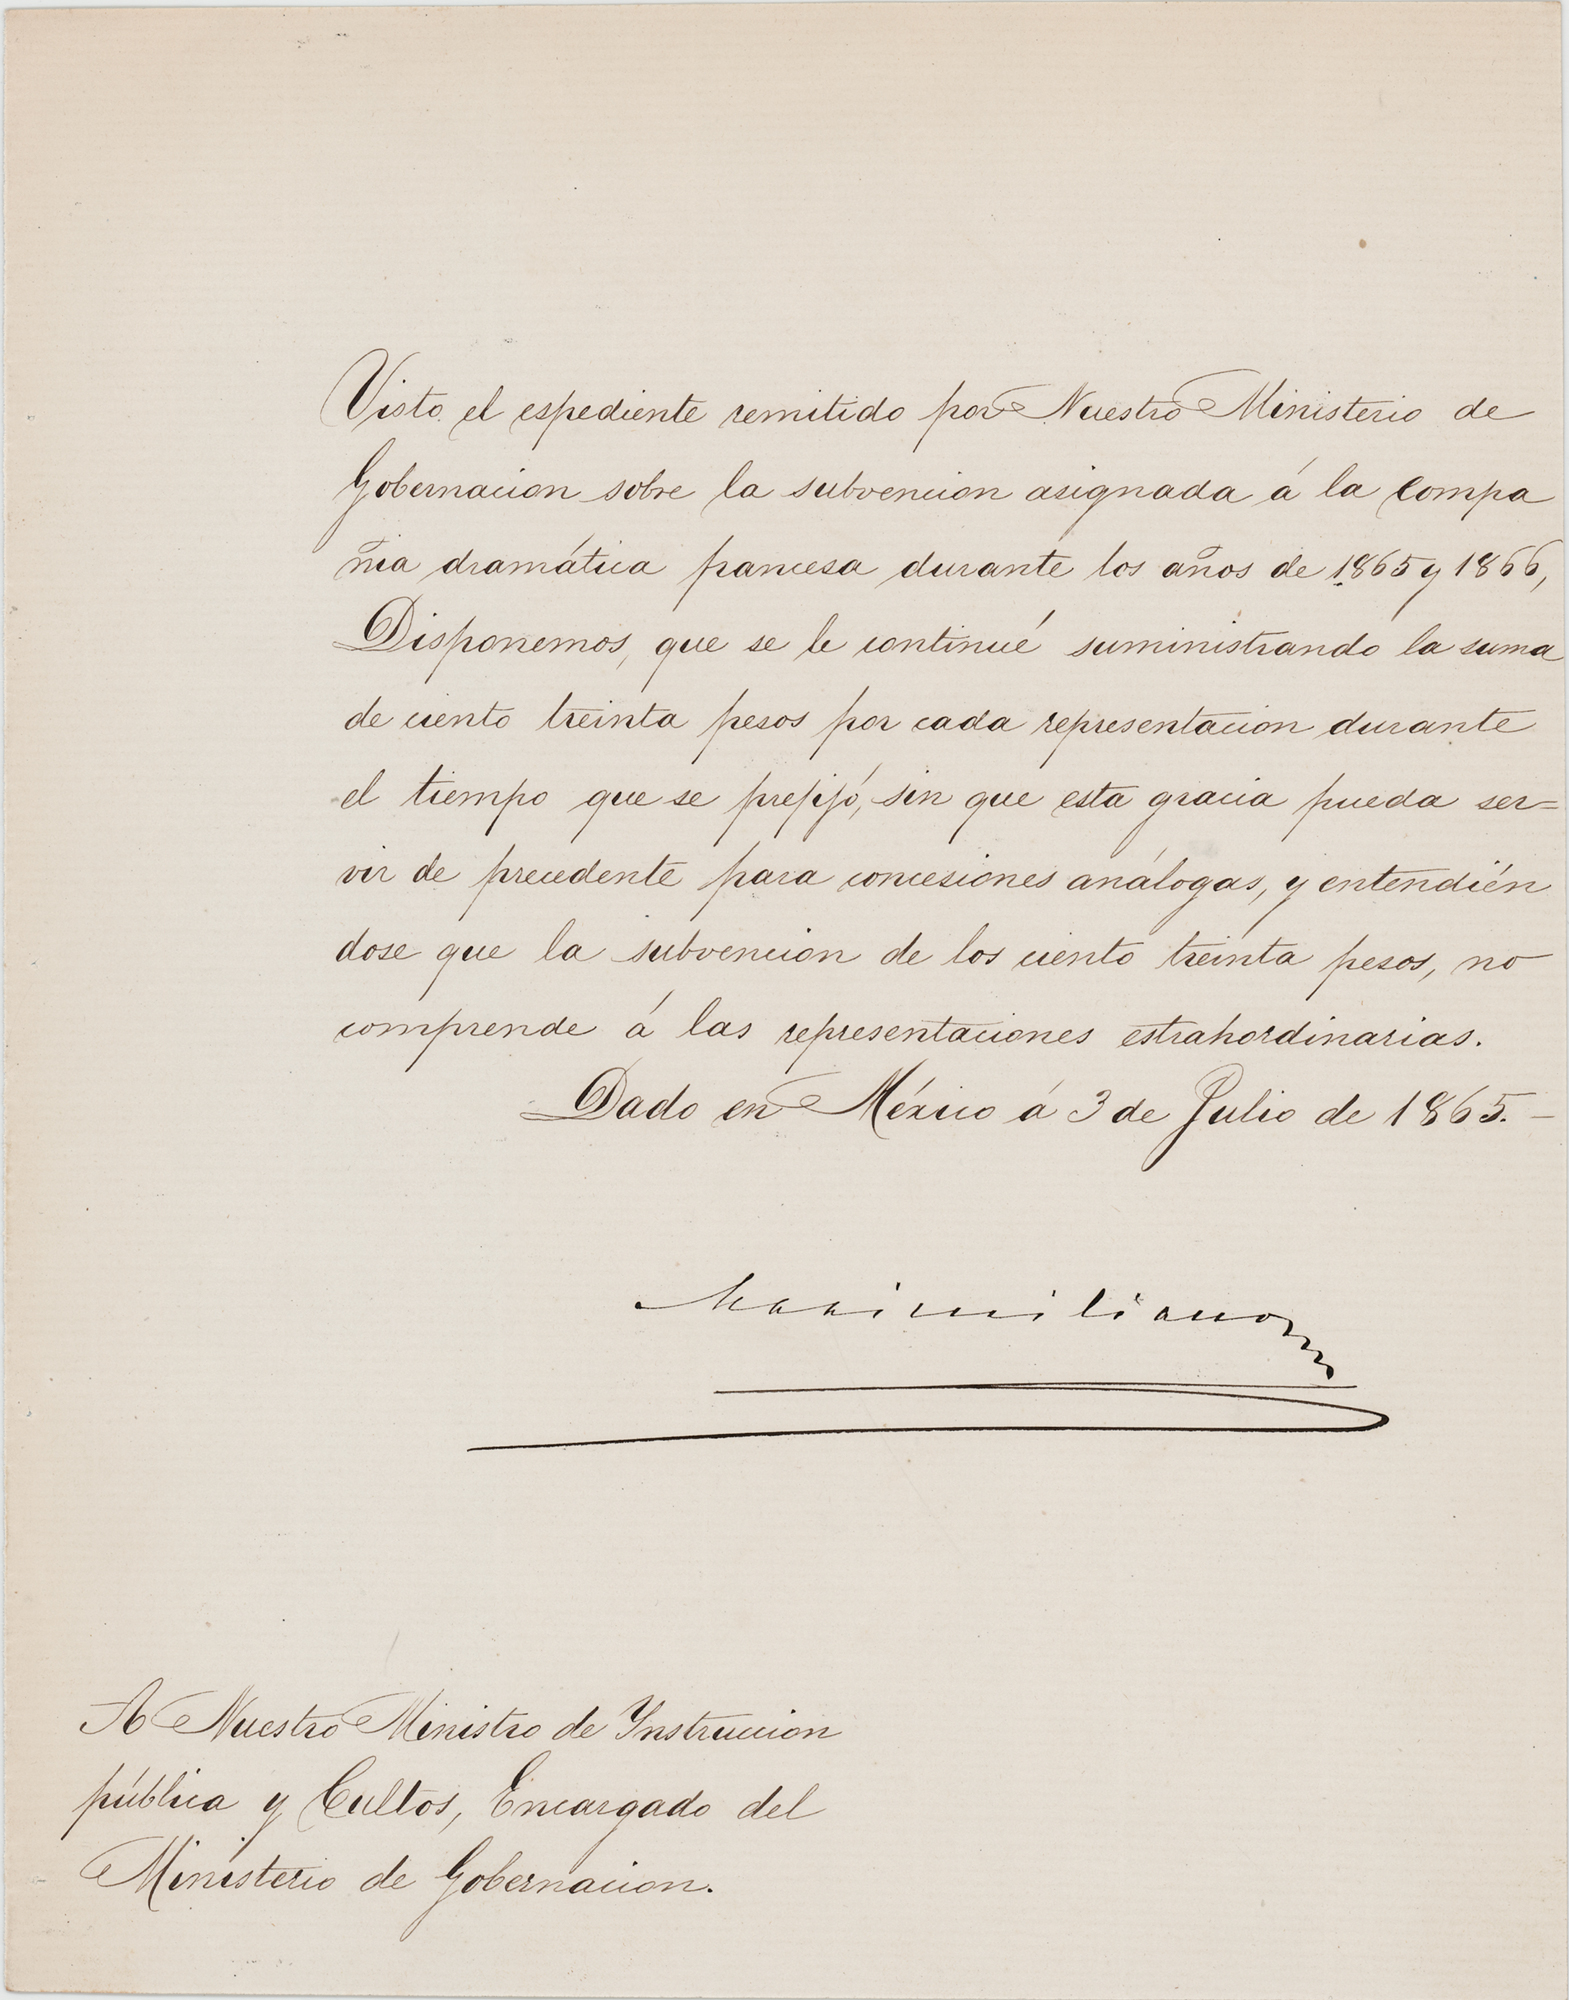 Visto el espediente remitido por Nuestro Ministerio de
Gobernacion sobre la subvencion asignada á la compa
ñia dramática francesa durante los años de 1865 y 1866,
Disponemos, que se le continué suministrando la suma
de ciento treinta pesos por cada representacion durante
el tiempo que se prefijó, sin que esta gracia pueda ser=
vir de precedente para concesiones análogas, y entendién
dose que la subvencion de los ciento treinta pesos, no
comprende á las representaciones estrahordinarias.
Dado en México á 3 de Julio de 1865.-
Maximiliano
A Nuestro Ministro de Instruccion
pública y Cultos, Encargado del
Ministerio de Gobernacion.